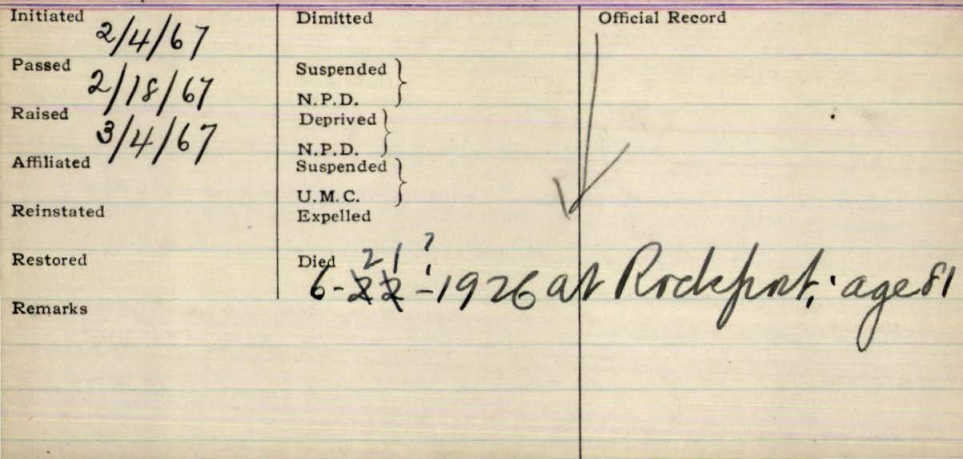 Initiated 2/4/67
Passed 2/18/67
Raised 3/4/67
Affiliated
Reinstated
Restored
Remarks
Dimitted
Suspended }
N.P.D.
Deprived }
N.P.D.
Suspended }
U.M.C.
Expelled
Died 21 ?
6-22-1926 at Rockport; age 81
Official Record